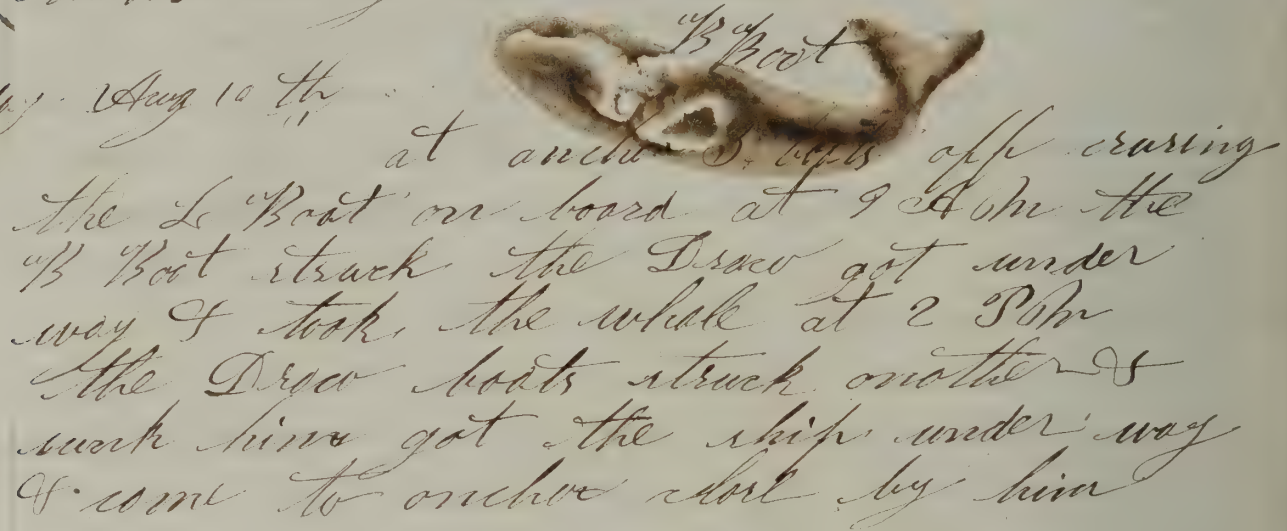 B Boat
Aug 10 th
at anchor 3 boats off crusing
the L Boat on board at 9 A M the
B Boat struck the Draco got under
way & took the whale at 2 P M
the Draco boats struck another &
sunk him got the ship under way
& come to anchor close by him